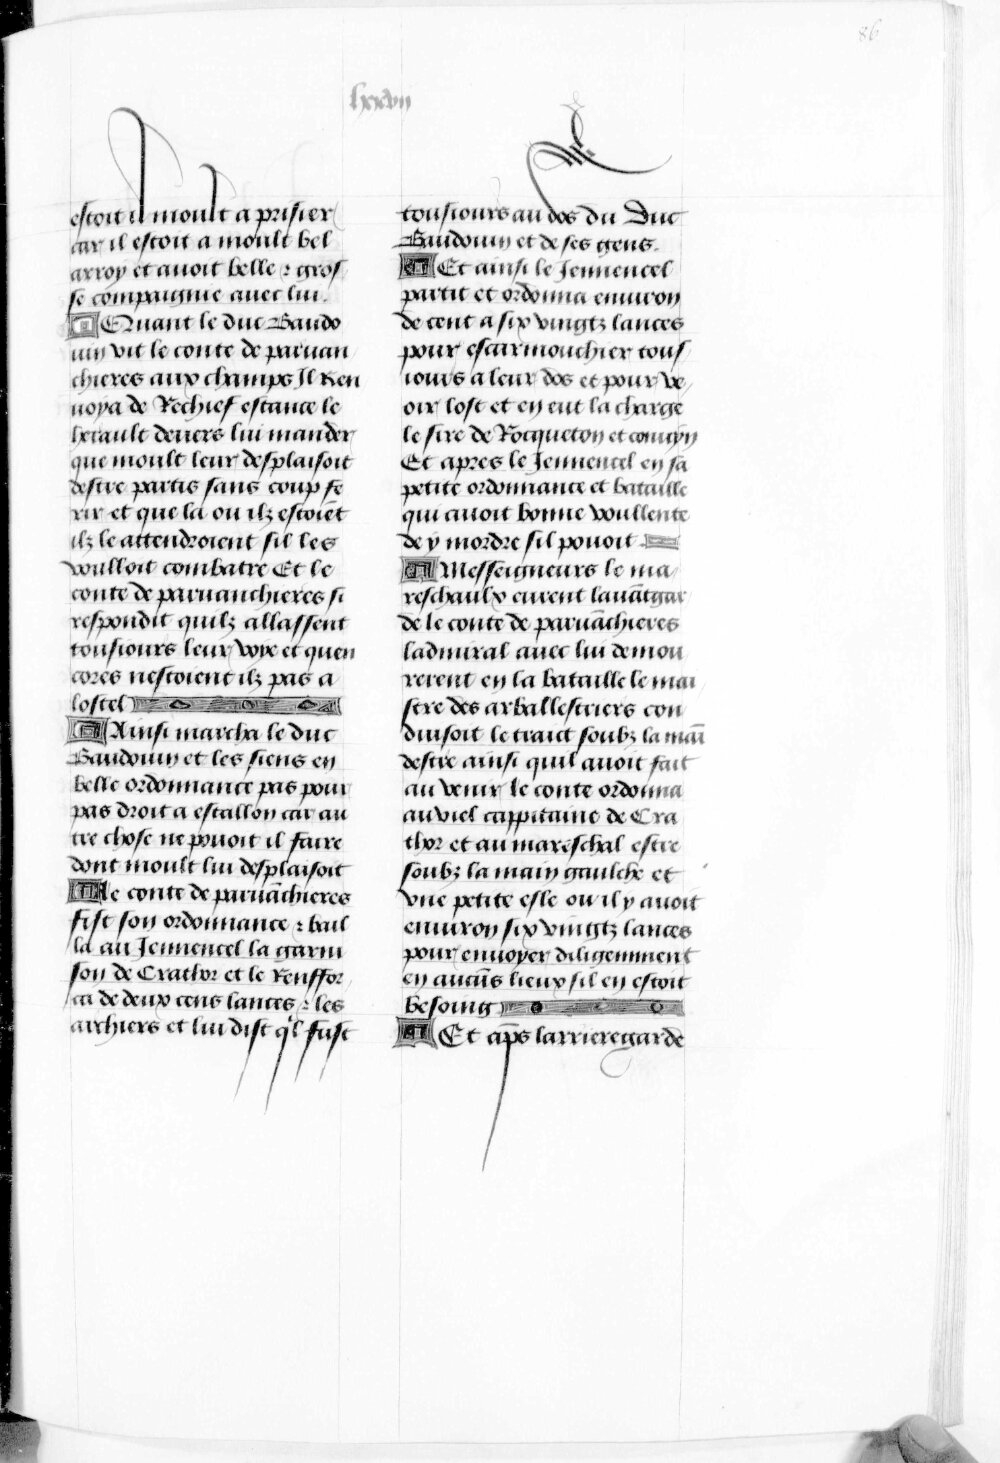 86
lxxvii
estoit il moult a prisier
car il estoit a moult bel
arroy et avoit belle ⁊ gros
se compaignie avec lui.
¶ Quant le duc Baudo
uin vit le conte de paruan
chieres aux champs Il Ren
uoya de Rechief estance le
herault deuers lui mander
que moult leur desplaisoit
destre partis sans coup fe
rir et que la ou ilz estoiēt
ilz le attendroient sil les
voulloit combatre Et le
conte de paruanchieres si
respondit quilz allassent
tousiours leur voye et quen
cores nestoient ilz pas a
lostel
¶ Ainsi marcha le duc
Baudouin et les siens en
belle ordonnance pas pour
pas droit a estallon car au
tre chose ne pouoit il faire
dont moult lui desplaisoit
¶ le conte de paruāchieres
fist son ordonnance ⁊ bail
la au Jennencel la garni
son de Crathor et le Renffor
ca de deux cens lances ⁊ les
archiers et lui dist q'l fust
tousiours au dos du Duc
Baudouin et de ses gens.
¶ Et ainsi le Jennencel
partit et ordonna enuiron
de cent a six vingtz lances
pour escarmouchier tous
iours a leur dos et pour ve
oir lost et en eut la charge
le sire de Rocqueton et
Et apres le Jennencel en sa
petite ordonnance et bataille
qui auoit bonne voullente
de y mordre sil pouoit
¶ Messeigneurs le ma
reschaulx eurent lauātgar
de le conte de paruāchieres
ladmiral auec lui demou
rerent en la bataille le mai
stre des arballestriers con
duisoit le traict soubz la maī
destre ainsi quil auoit fait
au venir le conte ordonna
au viel cappitaine de Cra
thor et au mareschal estre
soubz la main gaulche et
vne petite esle ou il y auoit
enuiron six vingtz lances
pour enuoyer diligemment
en aucūs lieux sil en estoit
besoing
¶ Et ap̄s larrieregarde